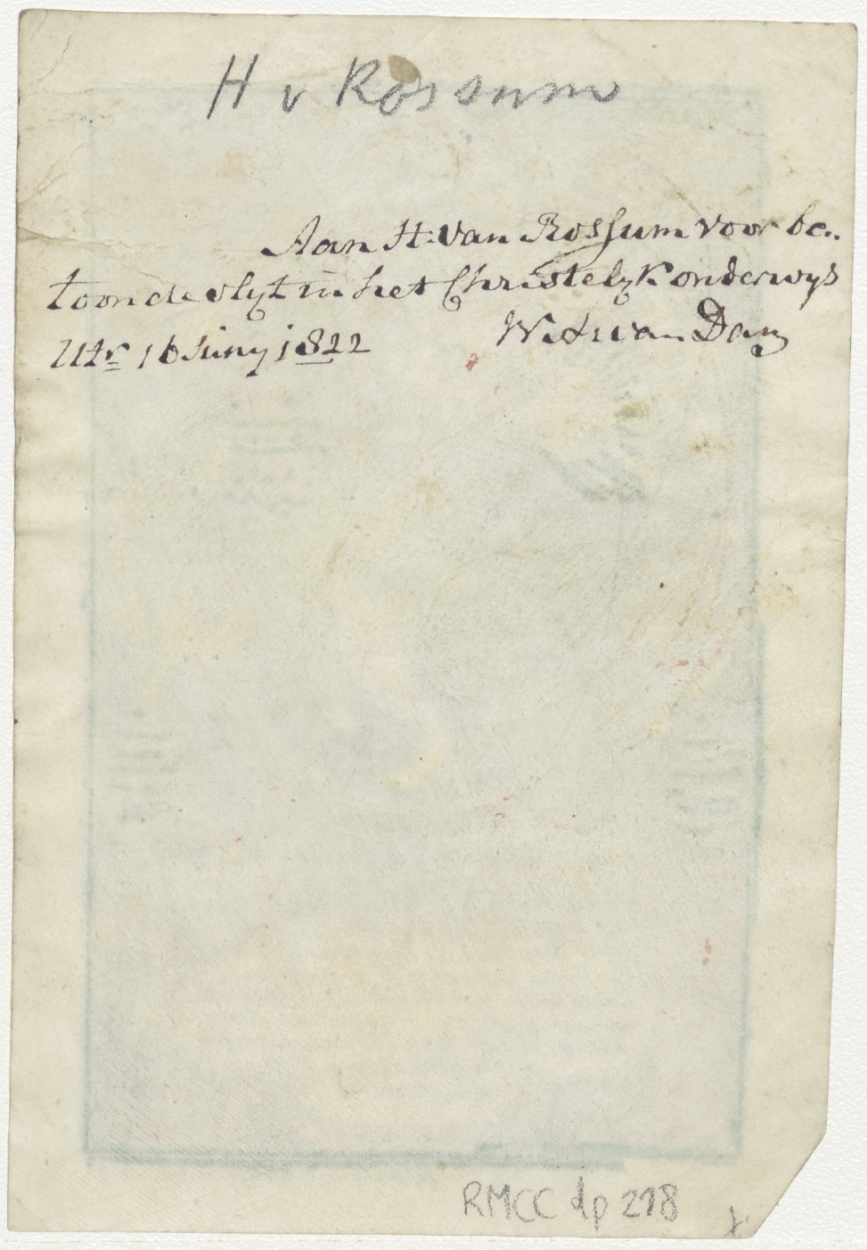 H v Rossum
Aan H: van Rossum voor be-
toonde vlyt in het Christelyk onderwys
Utr 16 Juny 1822 van Dam
RMCC dp 218